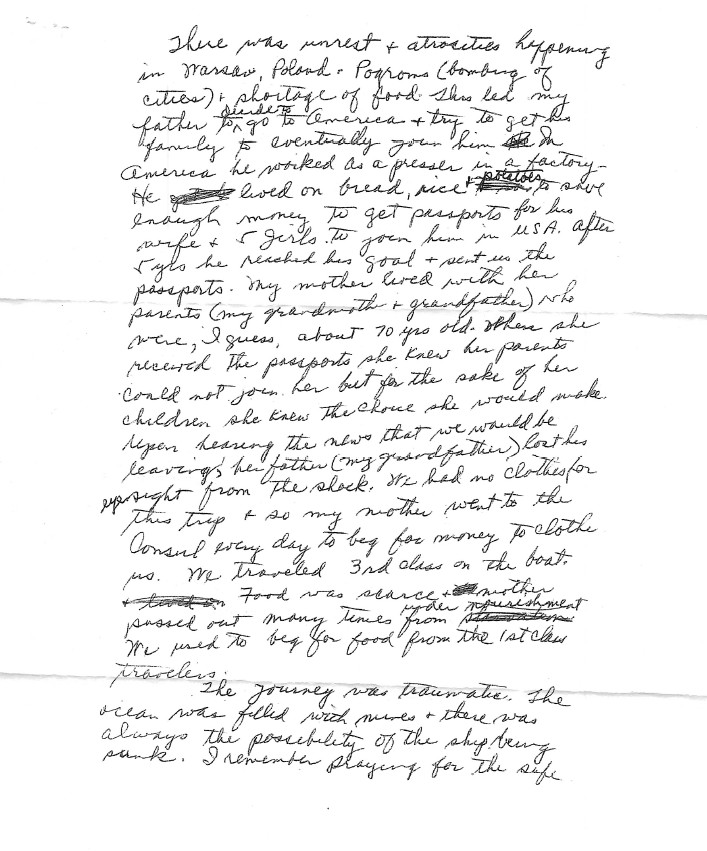 There was unrest + atrosities happening
in Warsaw, Poland. Pogroms (bombing of
cities) + shortage of food. This led my
father to decide to go to America + try to get his
family to eventually join him. In
America he worked as a presser in a factory.
He lived on bread, rice + potatoes to save
enough money to get passports for his
wife + 5 girls. to join him in USA. After
5 yrs he reached his goal + sent us the
passports. My mother lived with her
parents (my grandmoth + grandfather) who
were, I guess, about 70 yrs old. When she
received the passports she knew her parents
could not join her but for the sake of her
children she knew the choice she would make.
Upon hearing the news that we would be
leaving, her father (my grandfather) lost his
eyesight from the shock. We had no clothes for
this trip + so my mother went to the
Consul every day to beg for money to clothe
us. We traveled 3rd class on the boat.
Food was scarce + mother
passed out many times from under nourishment
We used to beg for food from the 1st class
travelers.
The journey was traumatic. The
ocean was filled with mines + there was
always the possibility of the ship being
sunk. I remember praying for the safe